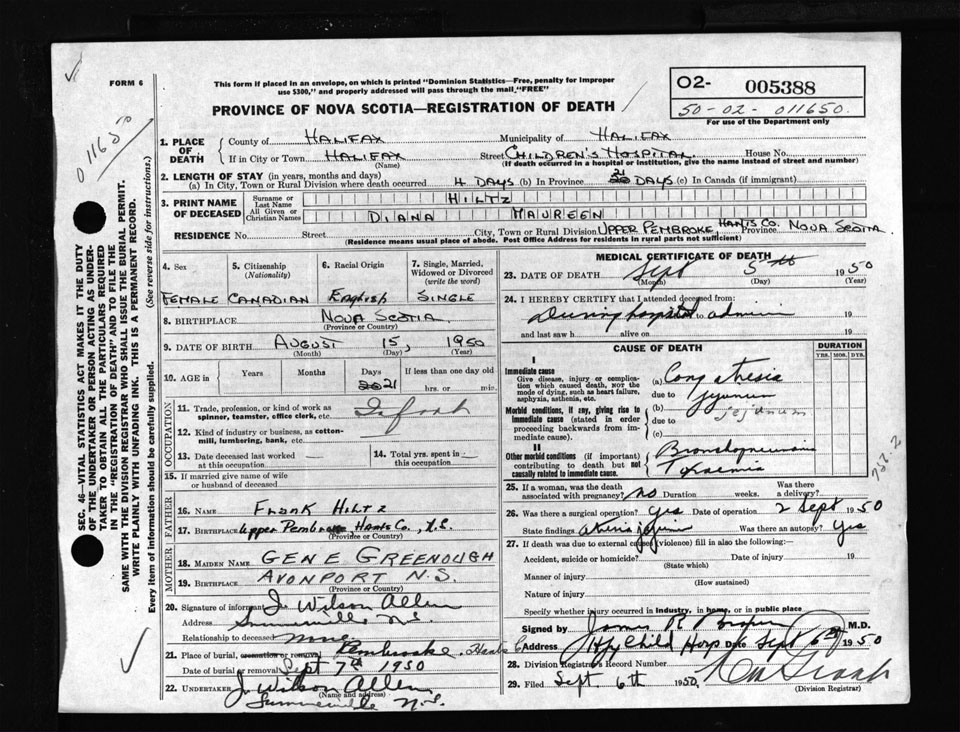 FORM 6
This form if placed in an envelope, on which is printed "Dominion Statistics—Free, penalty for improper
use $300," and properly addressed will pass through the mail "FREE"
PROVINCE OF NOVA SCOTIA—REGISTRATION OF DEATH
O2- 005388
50-02-011650
For use of the Department only
0 11650
SEC. 46—VITAL STATISTICS ACT MAKES IT THE DUTY
OF THE UNDERTAKER OR PERSON ACTING AS UNDER-
TAKER TO OBTAIN ALL THE PARTICULARS REQUIRED
IN THE "REGISTRATION OF DEATH" AND TO FILE THE
SAME WITH THE DIVISION REGISTRAR WHO SHALL ISSUE THE BURIAL PERMIT.
WRITE PLAINLY WITH UNFADING INK. THIS IS A PERMANENT RECORD.
Every item of information should be carefully supplied. (See reverse side for instructions.)
1. PLACE OF DEATH
County of HALIFAX Municipality of HALIFAX
If in City or Town HALIFAX Street CHILDREN'S HOSPITAL House No.
(Name) (If death occurred in a hospital or institution, give the name instead of street and number)
2. LENGTH OF STAY (in years, months and days)
(a) In City, Town or Rural Division where death occurred 4 DAYS (b) In Province 21 DAYS (c) In Canada (if immigrant)
3. PRINT NAME OF DECEASED
Surname or Last Name HILTZ
All Given or Christian Names DIANA MAUREEN
RESIDENCE No. Street City, Town or Rural Division UPPER PEMBROKE, HANTS CO. Province NOVA SCOTIA
(Residence means usual place of abode. Post Office Address for residents in rural parts not sufficient)
4. Sex
FEMALE
5. Citizenship
(Nationality)
CANADIAN
6. Racial Origin
English
7. Single, Married,
Widowed or Divorced
(write the word)
SINGLE
8. BIRTHPLACE NOVA SCOTIA
(Province or Country)
9. DATE OF BIRTH AUGUST 15, 1950
(Month) (Day) (Year)
10. AGE in Years Months Days 21 If less than one day old
hrs. or min.
OCCUPATION
11. Trade, profession, or kind of work as
spinner, teamster, office clerk, etc.
12. Kind of industry or business, as cotton-
mill, lumbering, bank, etc.
13. Date deceased last worked
at this occupation
14. Total yrs. spent in
this occupation
15. If married give name of wife
or husband of deceased
FATHER
16. Name FRANK HILTZ
17. Birthplace Upper Pembroke Hants Co., N.S.
(Province or Country)
MOTHER
18. MAIDEN NAME GENE GREENOUGH
19. BIRTHPLACE AVONPORT N.S.
(Province or Country)
20. Signature of informant J. Wilson Allen
Address Summerville N.S.
Relationship to deceased none
21. Place of burial, cremation or removal Pembroke. Hants C
Date of burial or removal Sept 7th 1950
22. UNDERTAKER J. Wilson Allen
(Name and address)
Summerville N.S.
MEDICAL CERTIFICATE OF DEATH
23. DATE OF DEATH Sept 5th 1950
(Month) (Day) (Year)
24. I HEREBY CERTIFY that I attended deceased from:
During hospital to 19
and last saw h alive on 19
CAUSE OF DEATH
DURATION
YRS. MOS. DYS.
I
Immediate cause
Give disease, injury or complica-
tion which caused death, NOT the
mode of dying, such as heart failure,
asphyxia, asthenia, etc.
Morbid conditions, if any, giving rise to
immediate cause (stated in order
proceeding backwards from im-
mediate cause).
II
Other morbid conditions (if important)
contributing to death but not
causally related to immediate cause.
(a) Cong atresia
due to jejunum
(b)
due to jejunum
(c)
Bronchopneumonia
Toxaemia
25. If a woman, was the death
associated with pregnancy? no Duration weeks. Was there
a delivery?
26. Was there surgical operation? yes Date of operation 2 Sept 1950
State findings Was there an autopsy? Yes
27. If death was due to external causes (violence) fill in also the following:—
Accident, suicide or homicide? Date of injury 19
(State which)
Manner of injury
(How sustained)
Nature of injury
Specify whether injury occurred in industry, in home, or in public place
Signed by James R M.D.
Address Hfx Child Hosp Date Sept 6th 1950
28. Division Registrar's Record Number
29. Filed Sept 6th 1950
(Division Registrar)